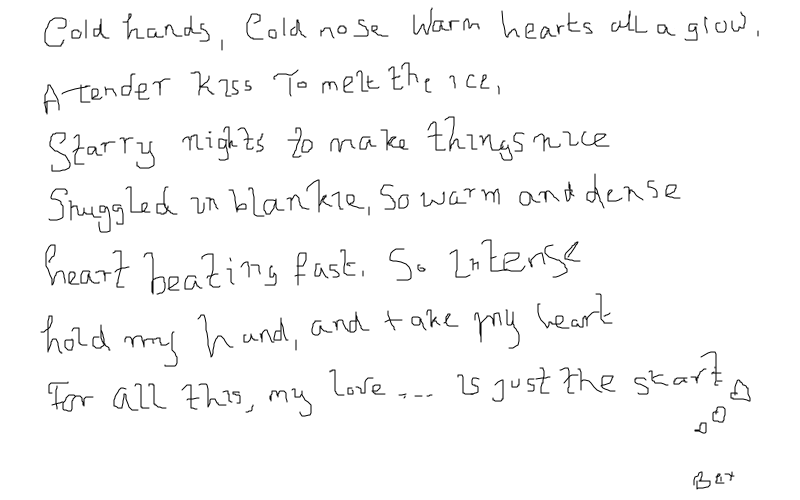 Cold hands, Cold nose Warm hearts all a glow.
A tender kiss To melt the ice,
Starry nights to make things nice
Snuggled in blankie, So warm and dense
heart beating fast. So Intense
hold my hand, and take my heart
For all this, my love .... is just the start